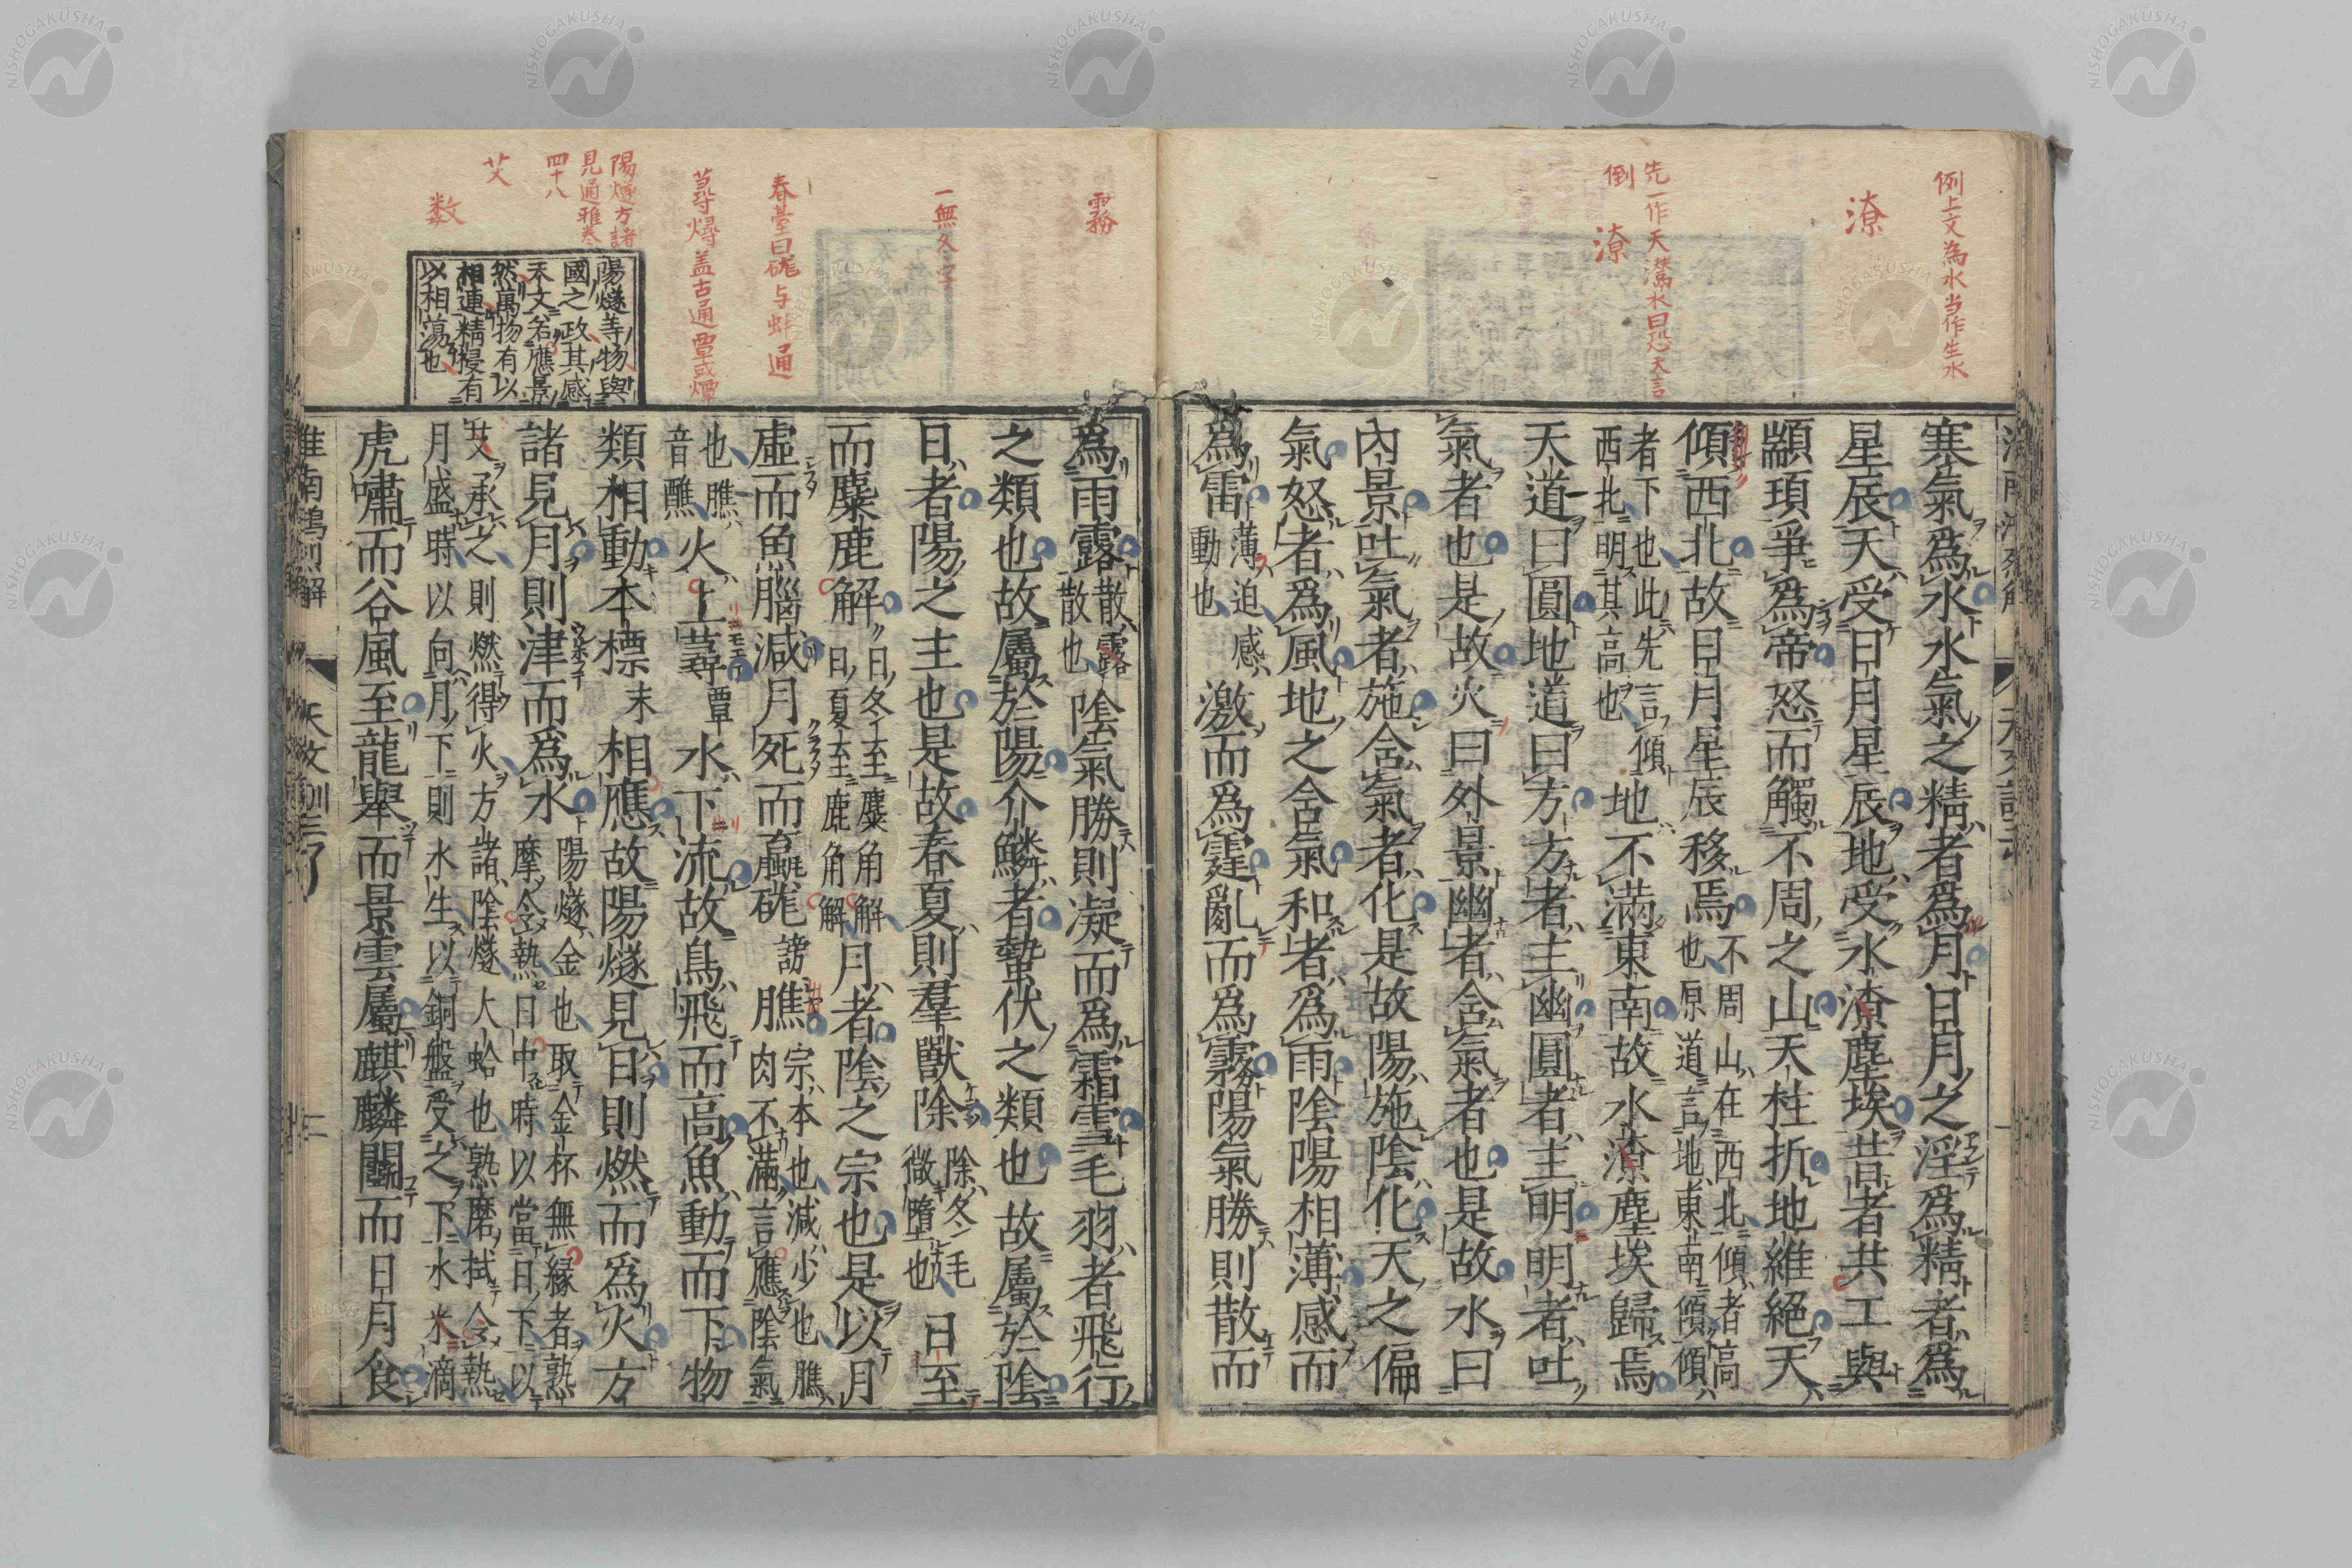 例上文為水当作生水
潦
先一作天灊水曰恐天言
倒
潦
寒氣爲水水氣之精者爲月日月之淫爲精者爲
星辰天受日月星辰地受水潦塵埃昔者共工與
顓頊爭爲帝怒而觸不周之山天柱折地維絕天
傾西北故日月星辰移焉
不周山在西北傾者高
也原道言地東南傾傾
者下也此先言傾
西北明其高也
地不滿東南故水潦塵埃歸焉
天道曰圓地道曰方方者主幽圓者主明明者吐
氣者也是故火曰外景幽者含氣者也是故水曰
內景吐氣者施含氣者化是故陽施陰化天之偏
氣怒者爲風地之含氣和者爲雨陰陽相薄感而
爲雷
薄迫感
動也
激而爲霆亂而爲霧陽氣勝則散而
霧
一無冬字
春臺曰硥与蚌通
蕁燖盖古通覃或燂
陽燧方諸
見通雅卷
四十八
艾
数
陽燧等物與
國之政其感
不文若應景
然萬物有以
相連精祲有
以相蕩也
爲雨露
散霧
散也
陰氣勝則凝而爲霜雪毛羽者飛行
之類也故屬於陽介鱗者蟄伏之類也故屬於陰
日者陽之主也是故春夏則羣獸除
除冬毛
微墮也
日至
而麋鹿解
日冬至麋角解
日夏至鹿角解
月者陰之宗也是以月
虛而魚腦減月死而蠃硥
謗
膲
宗本也減少也膲
肉不滿言應陰氣
也膲
音醮
火上蕁
覃
水下流故鳥飛而高魚動而下物
類相動本標
末
相應故陽燧見日則燃而爲火方
諸見月則津而爲水
陽燧金也取金杯無緣者熟
摩令熱日中時以當日下以
艾承之則燃得火方諸陰燧大蛤也熟磨拭令熱
月盛時以向月下則水生以銅盤受之下水米滴
虎嘯而谷風至龍舉而景雲屬麒麟鬭而日月食
淮南鴻烈解
天文訓三
二